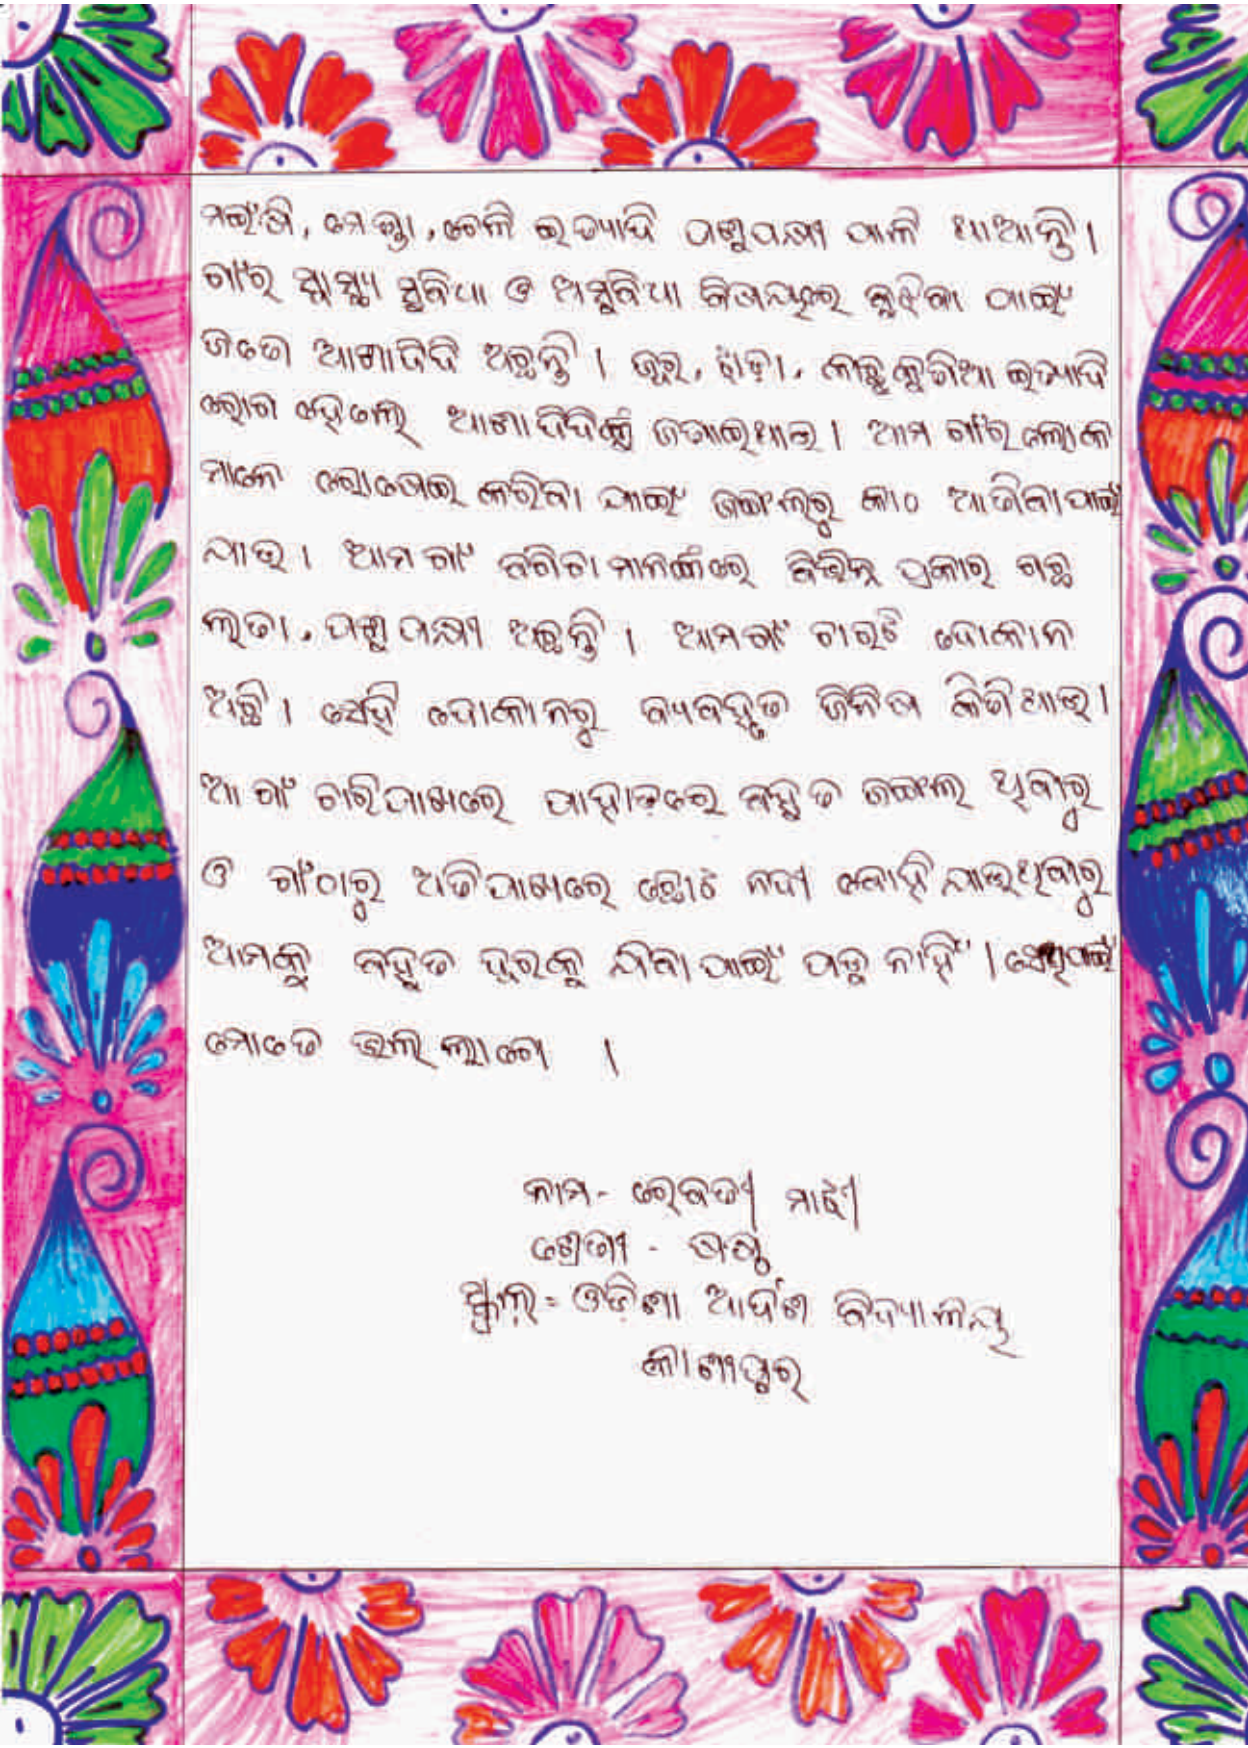 ମଇଂଷି, ମେଣ୍ଢା, ଛେଳି ଇତ୍ୟାଦି ପଶୁପକ୍ଷୀ ପାଳି ଥାଆନ୍ତି ।
ଗାଁର ସ୍ୱାସ୍ଥ୍ୟ ସୁବିଧା ଓ ଅସୁବିଧା ବିଷୟରେ ବୁଝିବା ପାଇଁ
ଜଣେ ଆଶାଦିଦି ଅଛନ୍ତି । ଜ୍ୱର, ଝାଡ଼ା, କାଛୁକୁଣ୍ଡିଆ ଇତ୍ୟାଦି
ରୋଗ ହେଲେ ଆଶା ଦିଦିଙ୍କୁ ଜଣାଇଥାଉ । ଆମ ଗାଁର ଲୋକ
ମାନେ ରୋଷେଇ କରିବା ପାଇଁ ଜଙ୍ଗଲରୁ କାଠ ଆଣିବା ପାଇଁ
ଯାଉ । ଆମ ଗାଁ ବଗିଚା ମାନଙ୍କରେ ବିଭିନ୍ନ ପ୍ରକାର ଗଛ
ଲତା, ପଶୁ ପକ୍ଷୀ ଅଛନ୍ତି । ଆମଗାଁ ଚାରଟି ଦୋକାନ
ଅଛି । ସେହି ଦୋକାନରୁ ବ୍ୟବହୃତ ଜିନିଷ କିଣିଥାଉ ।
ଆ ଗାଁ ଚାରିପାଖରେ ପାହାଡ଼ରେ ବହୁତ ଜଙ୍ଗଲ ଥିବାରୁ
ଓ ଗାଁଠାରୁ ଅତି ପାଖରେ ଛୋଟ ନଦୀ ବୋହି ଯାଉଥିବାରୁ
ଆମକୁ ବହୁତ ଦୂରକୁ ଯିବା ପାଇଁ ପଡୁ ନାହିଁ । ସେଥିପାଇଁ
ମୋତେ ଭଲ ଲାଗେ ।
ନାମ - ରେବତୀ ମାଝୀ
ଶ୍ରେଣୀ - ଷଷ୍ଠ
ସ୍କୁଲ = ଓଡ଼ିଶା ଆର୍ଦଶ ବିଦ୍ୟାଳୟ
କାଶୀପୁର